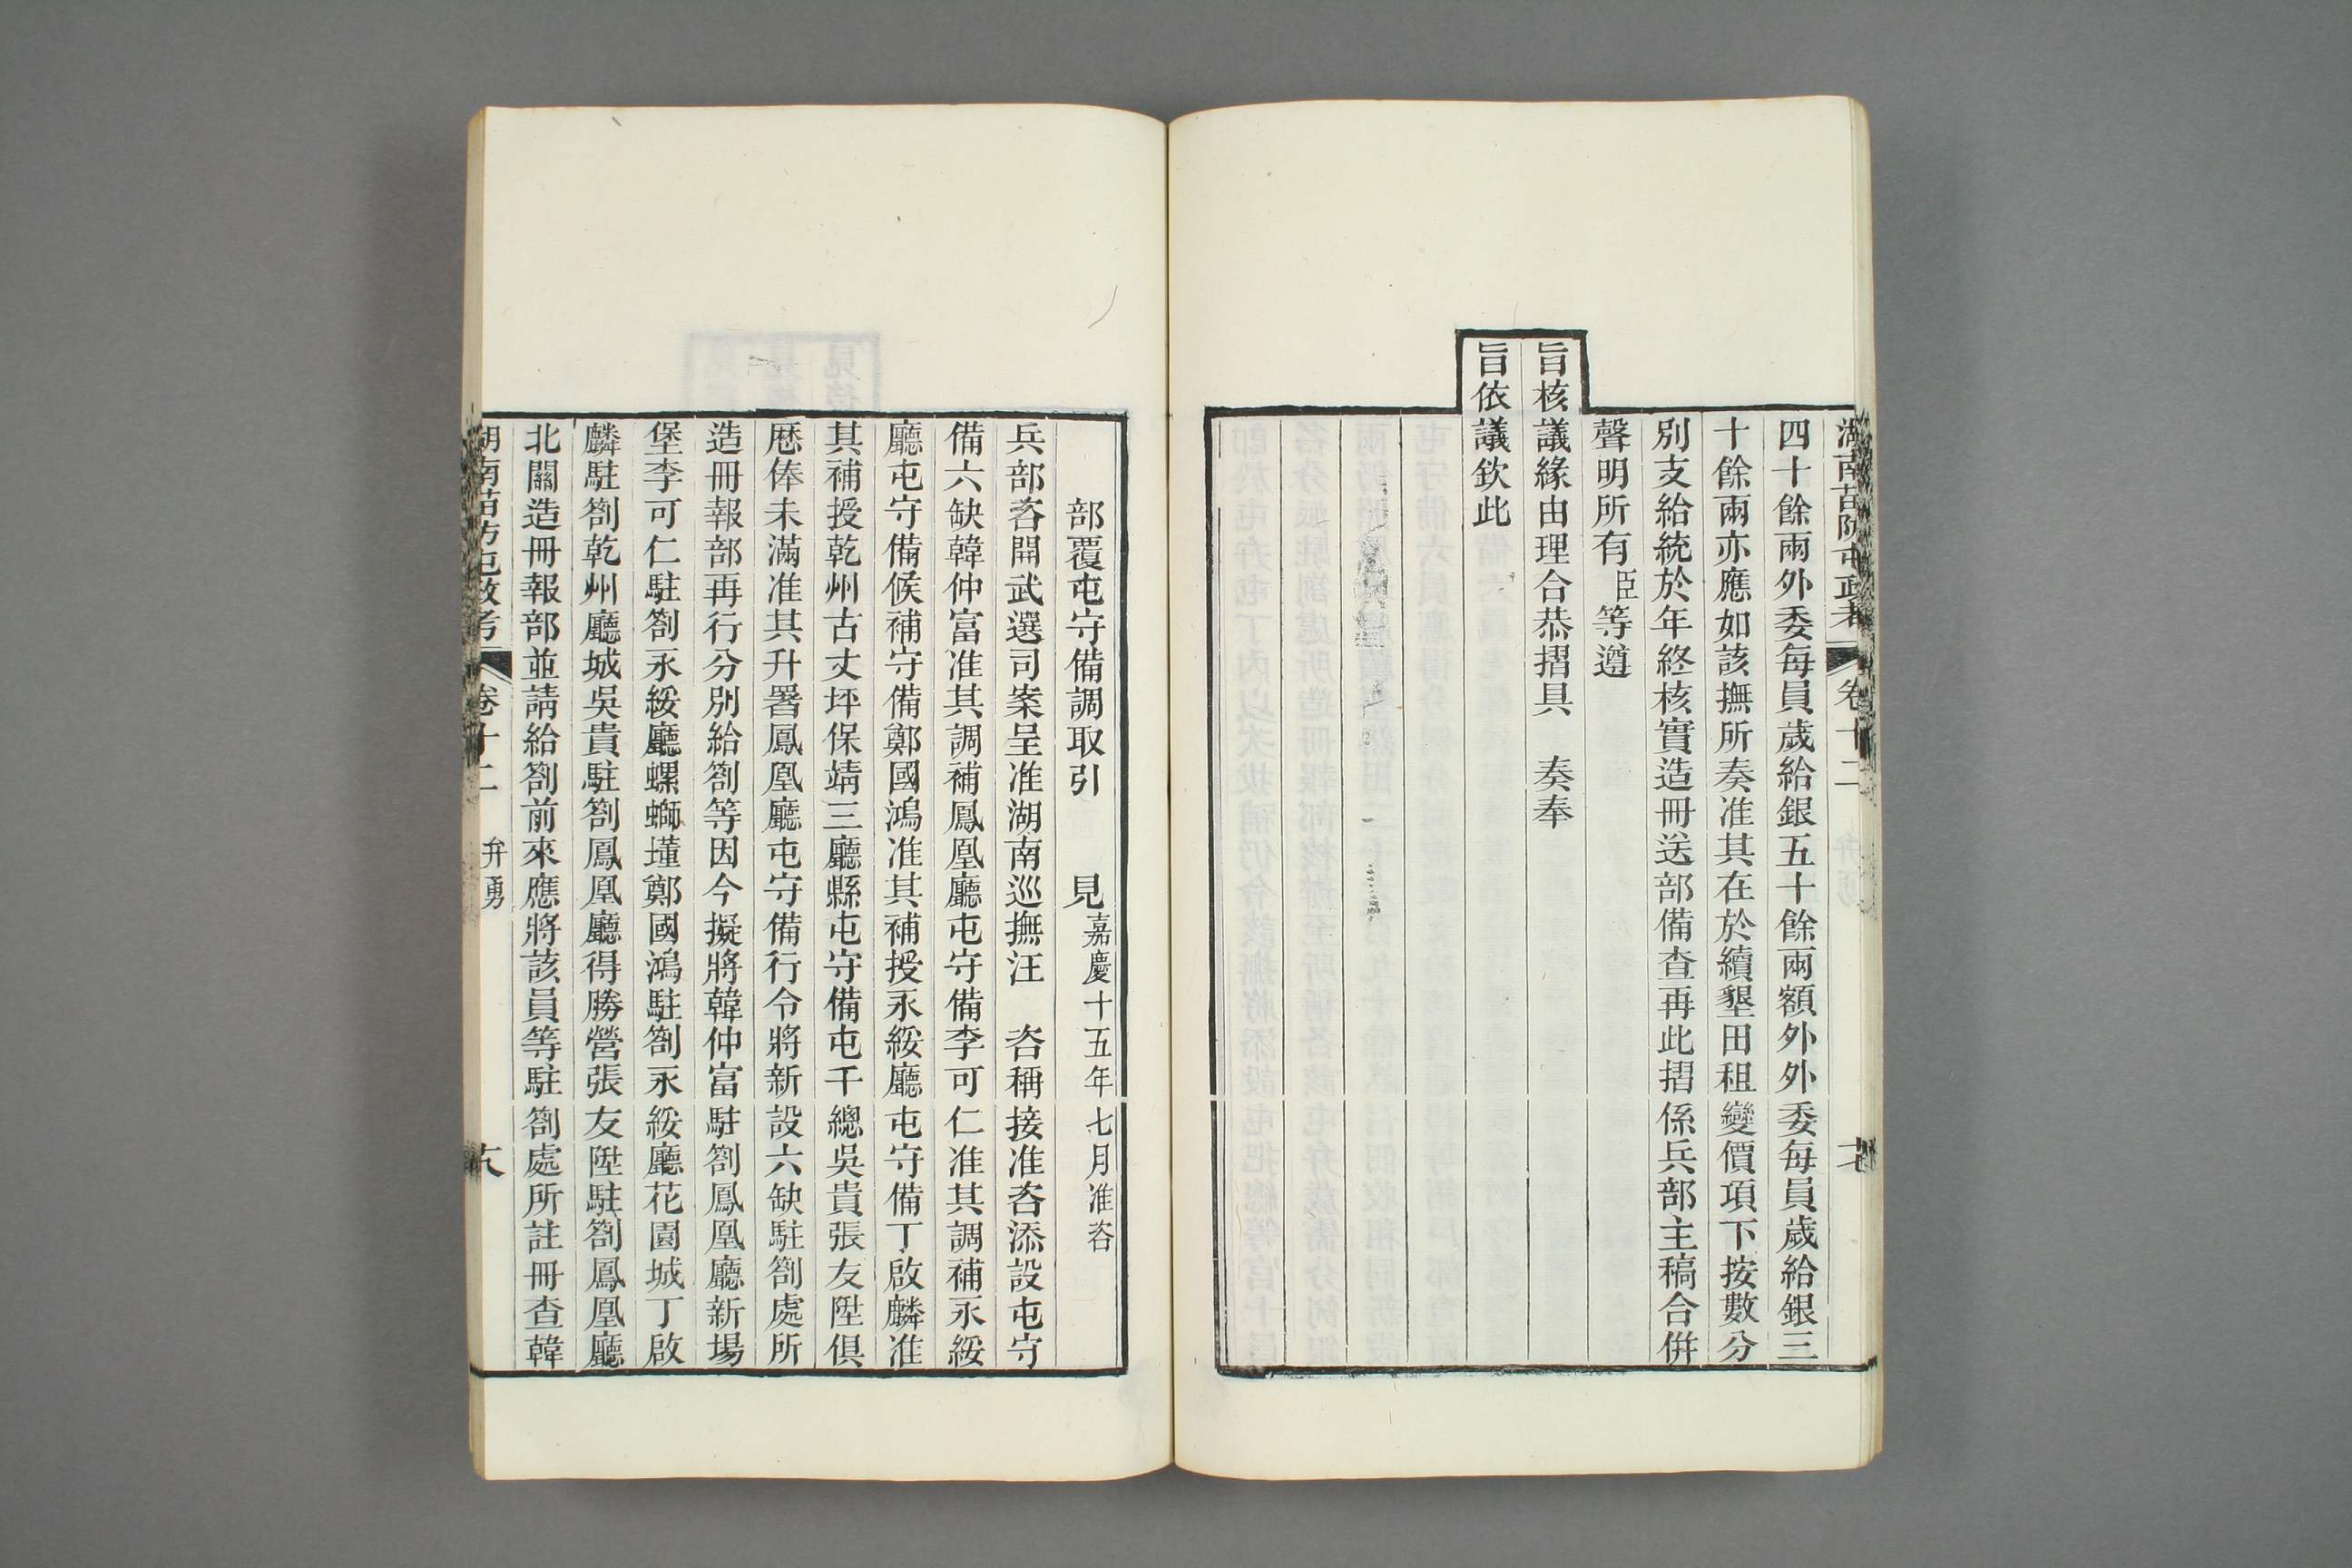 湖南苗防屯政考 卷十二
四十餘兩外委每員歲給銀五十餘兩額外外委每員歲給銀三
十餘兩亦應如該撫所奏准其在於續墾田租變價項下按數分
別支給統於年終核實造冊送部備查再此摺係兵部主稿合倂
聲明所有臣等遵
旨核議緣由理合恭摺具 奏奉
旨依議欽此
部覆屯守備調取引 見嘉慶十五年七月准咨
兵部咨開武選司案呈准湖南巡撫汪 咨稱接准咨添設屯守
備六缺韓仲富准其調補鳳凰廳屯守備李可仁准其調補永綏
廳屯守備候補守備鄭國鴻准其補授永綏廳屯守備丁啟麟准
其補授乾州古丈坪保靖三廳縣屯守備屯千總吳貴張友陞俱
厯俸未滿准其升署鳳凰廳屯守備行令將新設六缺駐劄處所
造冊報部再行分別給劄等因今擬將韓仲富駐劄鳳凰廳新場
堡李可仁駐劄永綏廳螺螄墐鄭國鴻駐劄永綏廳花園城丁啟
麟駐劄乾州廳城吳貴駐劄鳳凰廳得勝營張友陞駐劄鳳凰廳
北關造冊報部並請給劄前來應將該員等駐劄處所註冊查韓
湖南苗防屯政考 卷十二 弁勇 六